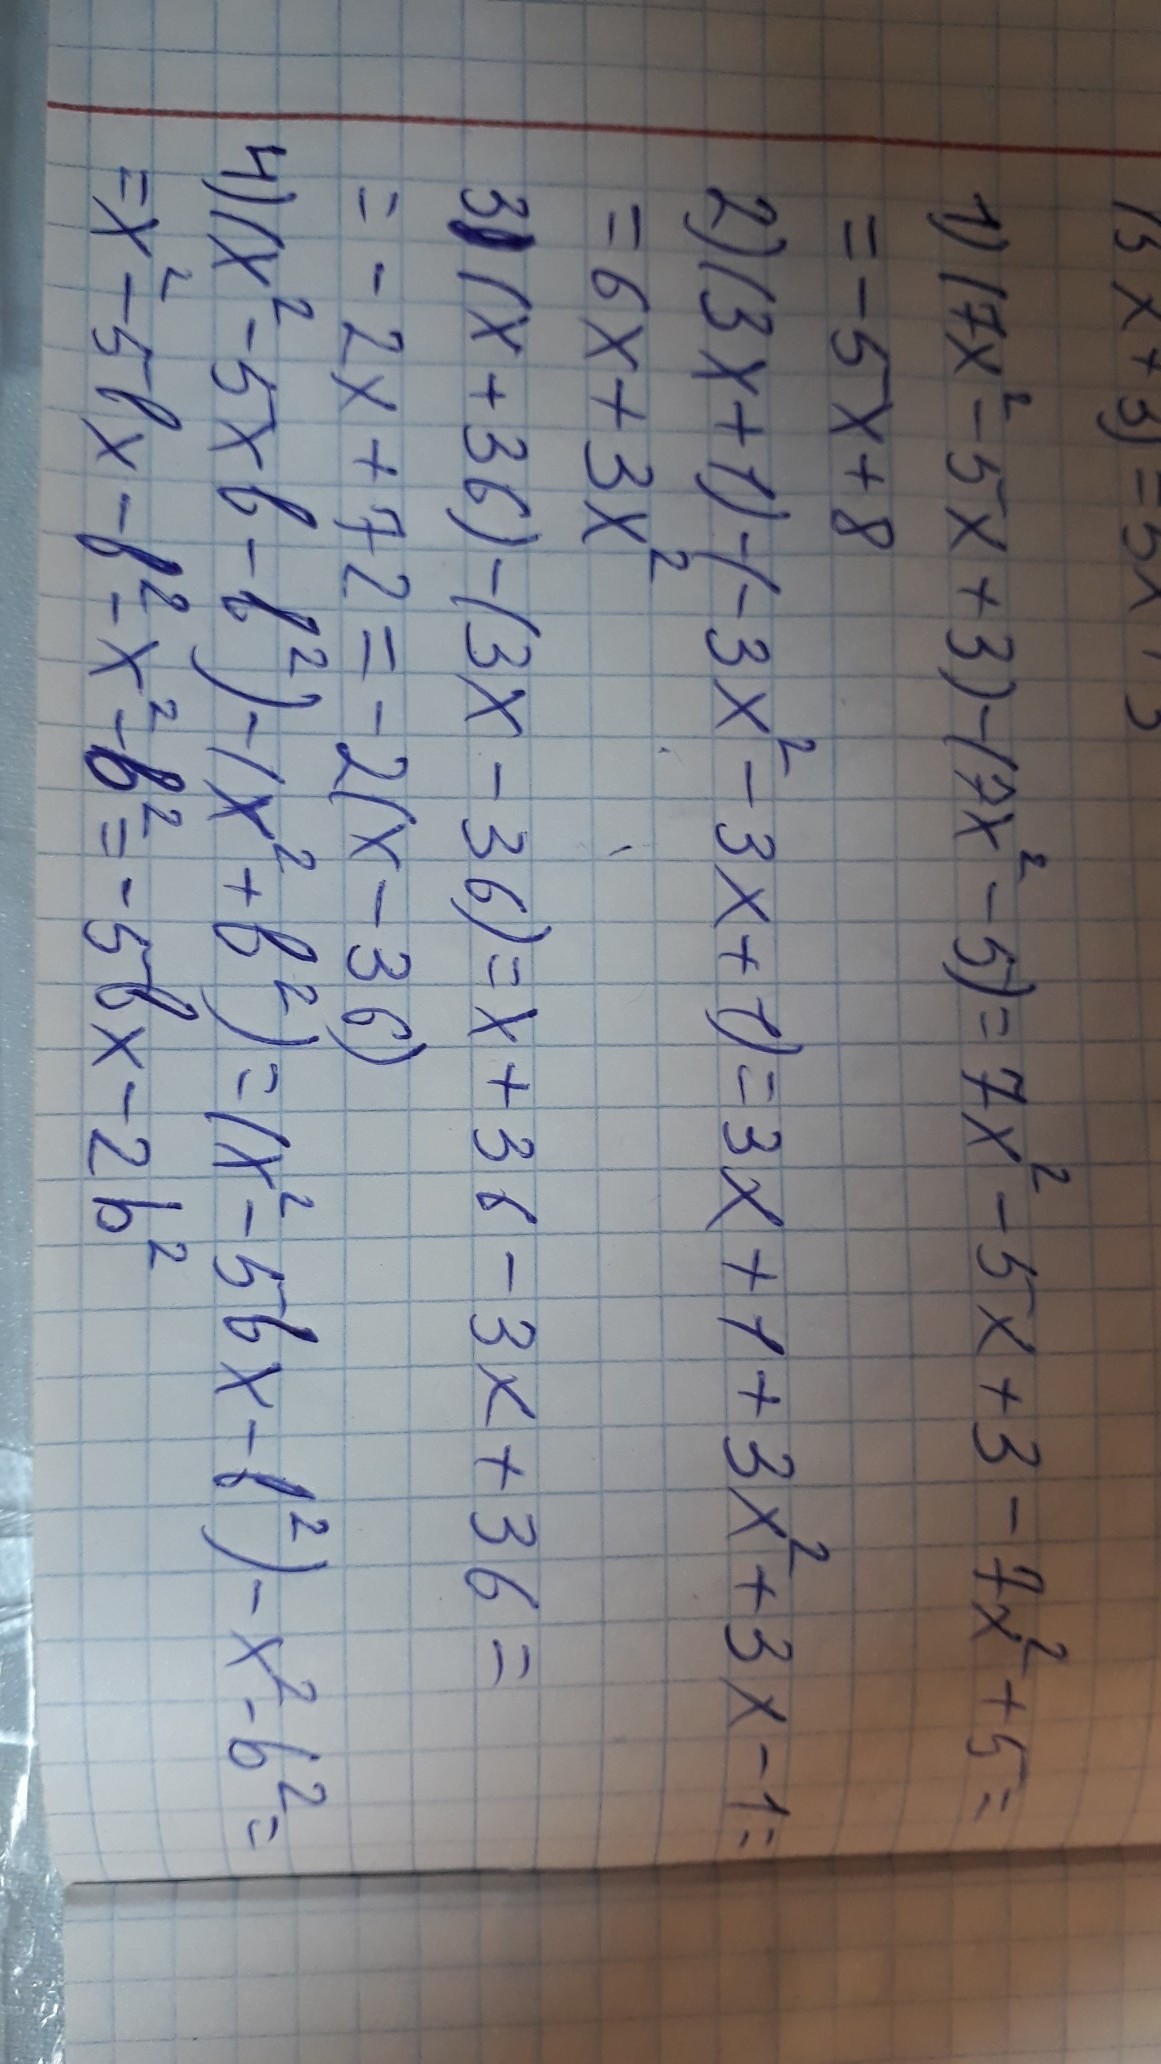 1) (7x² - 5x + 3) - (7x² - 5) = 7x² - 5x + 3 - 7x² + 5 =
= -5x + 8
2) (3x + 1) - (-3x² - 3x + 1) = 3x + 1 + 3x² + 3x - 1 =
= 6x + 3x²
3) (x + 36) - (3x - 36) = x + 36 - 3x + 36 =
= -2x + 72 = -2(x - 36)
4) (x² - 5xb - b²) - (x² + b²) = (x² - 5bx - b²) - x² - b² =
= x² - 5bx - b² - x² - b² = -5bx - 2b²